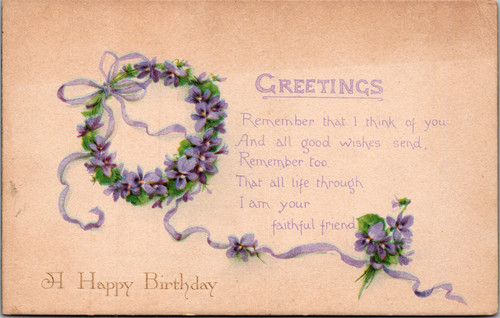 GREETINGS
Remember that I think of you
And all good wishes send,
Remember too
That all life through
I am your
faithful friend
A Happy Birthday